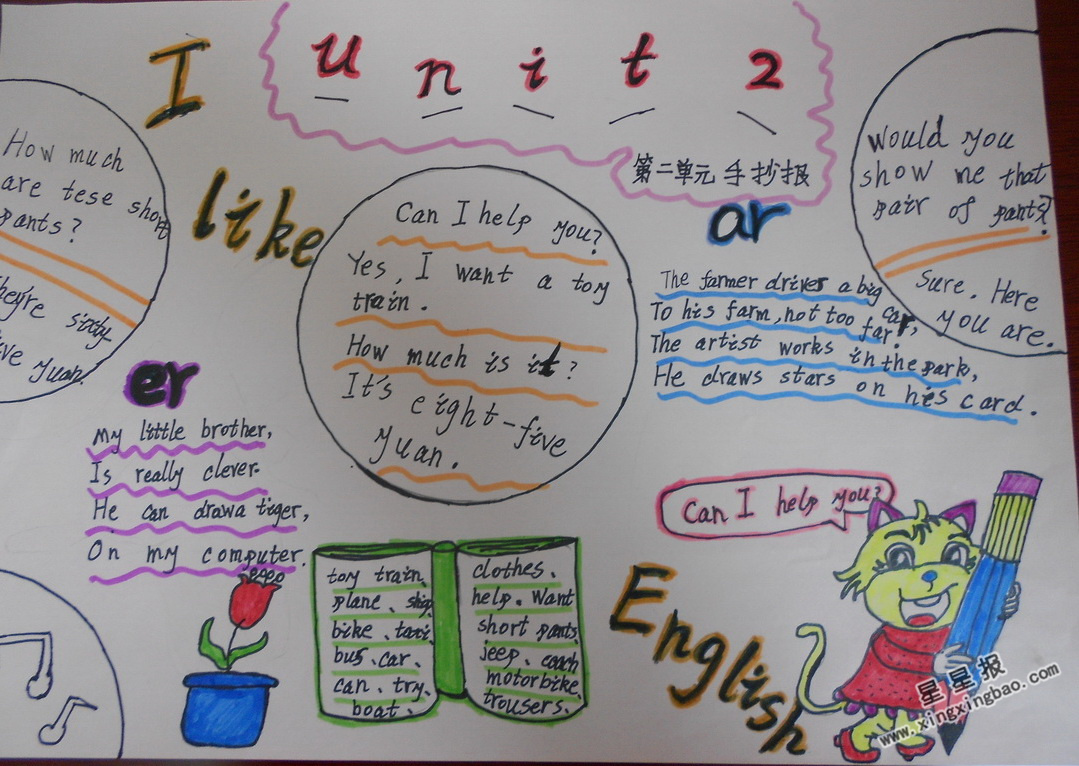 I
Unit 2
第二单元手抄报
like
How much
are tese short
pants?
They're sixty-
five yuan.
Can I help you?
Yes, I want a toy
train.
How much is it?
It's eight-five
yuan.
ar
The farmer drives a big
car,
To his farm, not too far.
The artist works in the park,
He draws stars on his card.
Would you
show me that
pair of pants?
Sure. Here
you are.
er
My little brother,
Is really clever.
He can drawa tiger,
On my computer.
toy train、
plane、ship
bike、taxi、
bus、car、
can、try、
boat、
clothes、
help、Want
short pants、
jeep、coach
motorbike、
trousers、
Can I help you?
English
星星报
www.xingxingbao.com